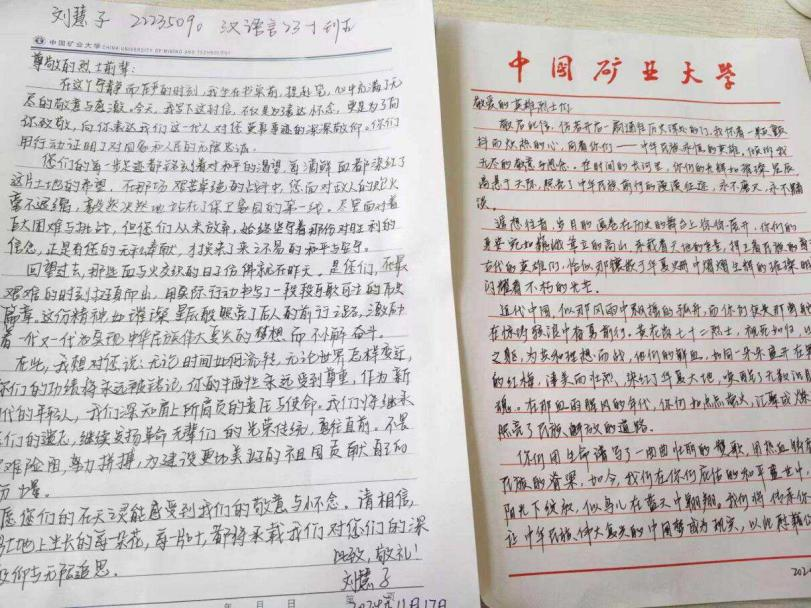 刘慧子 22235090 汉语言23-1
中国矿业大学 CHINA UNIVERSITY OF MINING AND TECHNOLOGY
尊敬的烈士前辈：
在这个宁静而庄严的时刻，我坐在书桌前，提起笔，心中充满了无
尽的敬意与感激。今天，我写下这封信，不仅是为表达怀念，更是为了向
你致敬，向你表达我们这一代人对您英勇事迹的深深敬仰。你们
用行动证明了对国家和人民的无限忠诚。
您们的每一步足迹都铭刻着对和平的渴望，每滴鲜血都浸红了
这片土地的希望。在那场艰苦卓绝的战斗中，您面对敌人的炮火
毫不退缩，毅然决然地站在了保卫家园的第一线。尽管面对着
巨大困难与挑战，但您们从未放弃，始终坚守着那份对胜利的
信念，正是有您的无私奉献，才换来了来之不易的和平与安宁。
回望过去，那些血与火交织的日子仿佛就在昨天。是您们，在最
艰难的时刻挺身而出，用实际行动书写了一段段可歌可泣的历史
篇章。这份精神如璀璨星辰般照亮了后人的前行之路，激励
着一代又一代为实现中华民族伟大复兴的梦想而不懈奋斗。
在此，我想对您说：无论时间如何流转，无论世界怎样变迁，
你们的功绩将永远被铭记，你的牺牲永远受到尊重，作为新
代的年轻人，我们深知肩上所肩负的责任与使命。我们将继承
们的遗志，继续发扬革命先辈们的光荣传统，勇往直前，不畏
难险阻，努力拼搏，为建设更加美好的祖国贡献自己的
力量。
愿您们的在天之灵能感受到我们的敬意与怀念。请相信，
土地上生长的每朵花，每一片叶，都将承载我们对您们的深
敬仰与无限追思。
此致，敬礼！
刘慧子
年 月 日
2024年11月17日
中国矿业大学
敬爱的英雄烈士们：
敬启此信，仿若开启一扇通往历史深处的门，我怀着一颗
抖而炽热的心，向着你们——中华民族永恒的英雄，倾诉我
无尽的敬意与思念。在时间的长河里，你们的光辉如璀璨星辰
高悬于天际，照亮了中华民族前行的漫漫征途，永不磨灭，永不
遥想往昔，岁月的画卷在历史的舞台上徐徐展开，你们的
英姿宛如巍峨耸立的高山，承载着天地的
古代的英雄们，恰似那镶嵌于华夏史册中熠熠生辉的璀璨明
闪耀着不朽的光芒。
近代中国，似那风雨中飘摇的孤舟，而你们便是那勇敢
在惊涛骇浪中奋勇前行。黄花岗七十二烈士，视死如归，
之躯，为共和理想而战，他们的鲜血，如同一朵朵盛开在
的红梅，凄美而壮烈，染红了华夏大地，唤醒了无数沉睡
魂。在那血雨腥风的年代，你们如点点萤火，汇聚成燎
照亮了民族解放的道路。
你们用生命谱写了一曲曲壮丽的赞歌，用热血铸就
民族的脊梁。如今，我们在你们庇佑的和平盛世中，
阳光下绽放，似鸟儿在蓝天中翱翔。我们将传承你们
让中华民族伟大复兴的中国梦成为现实，以此慰藉你
2024